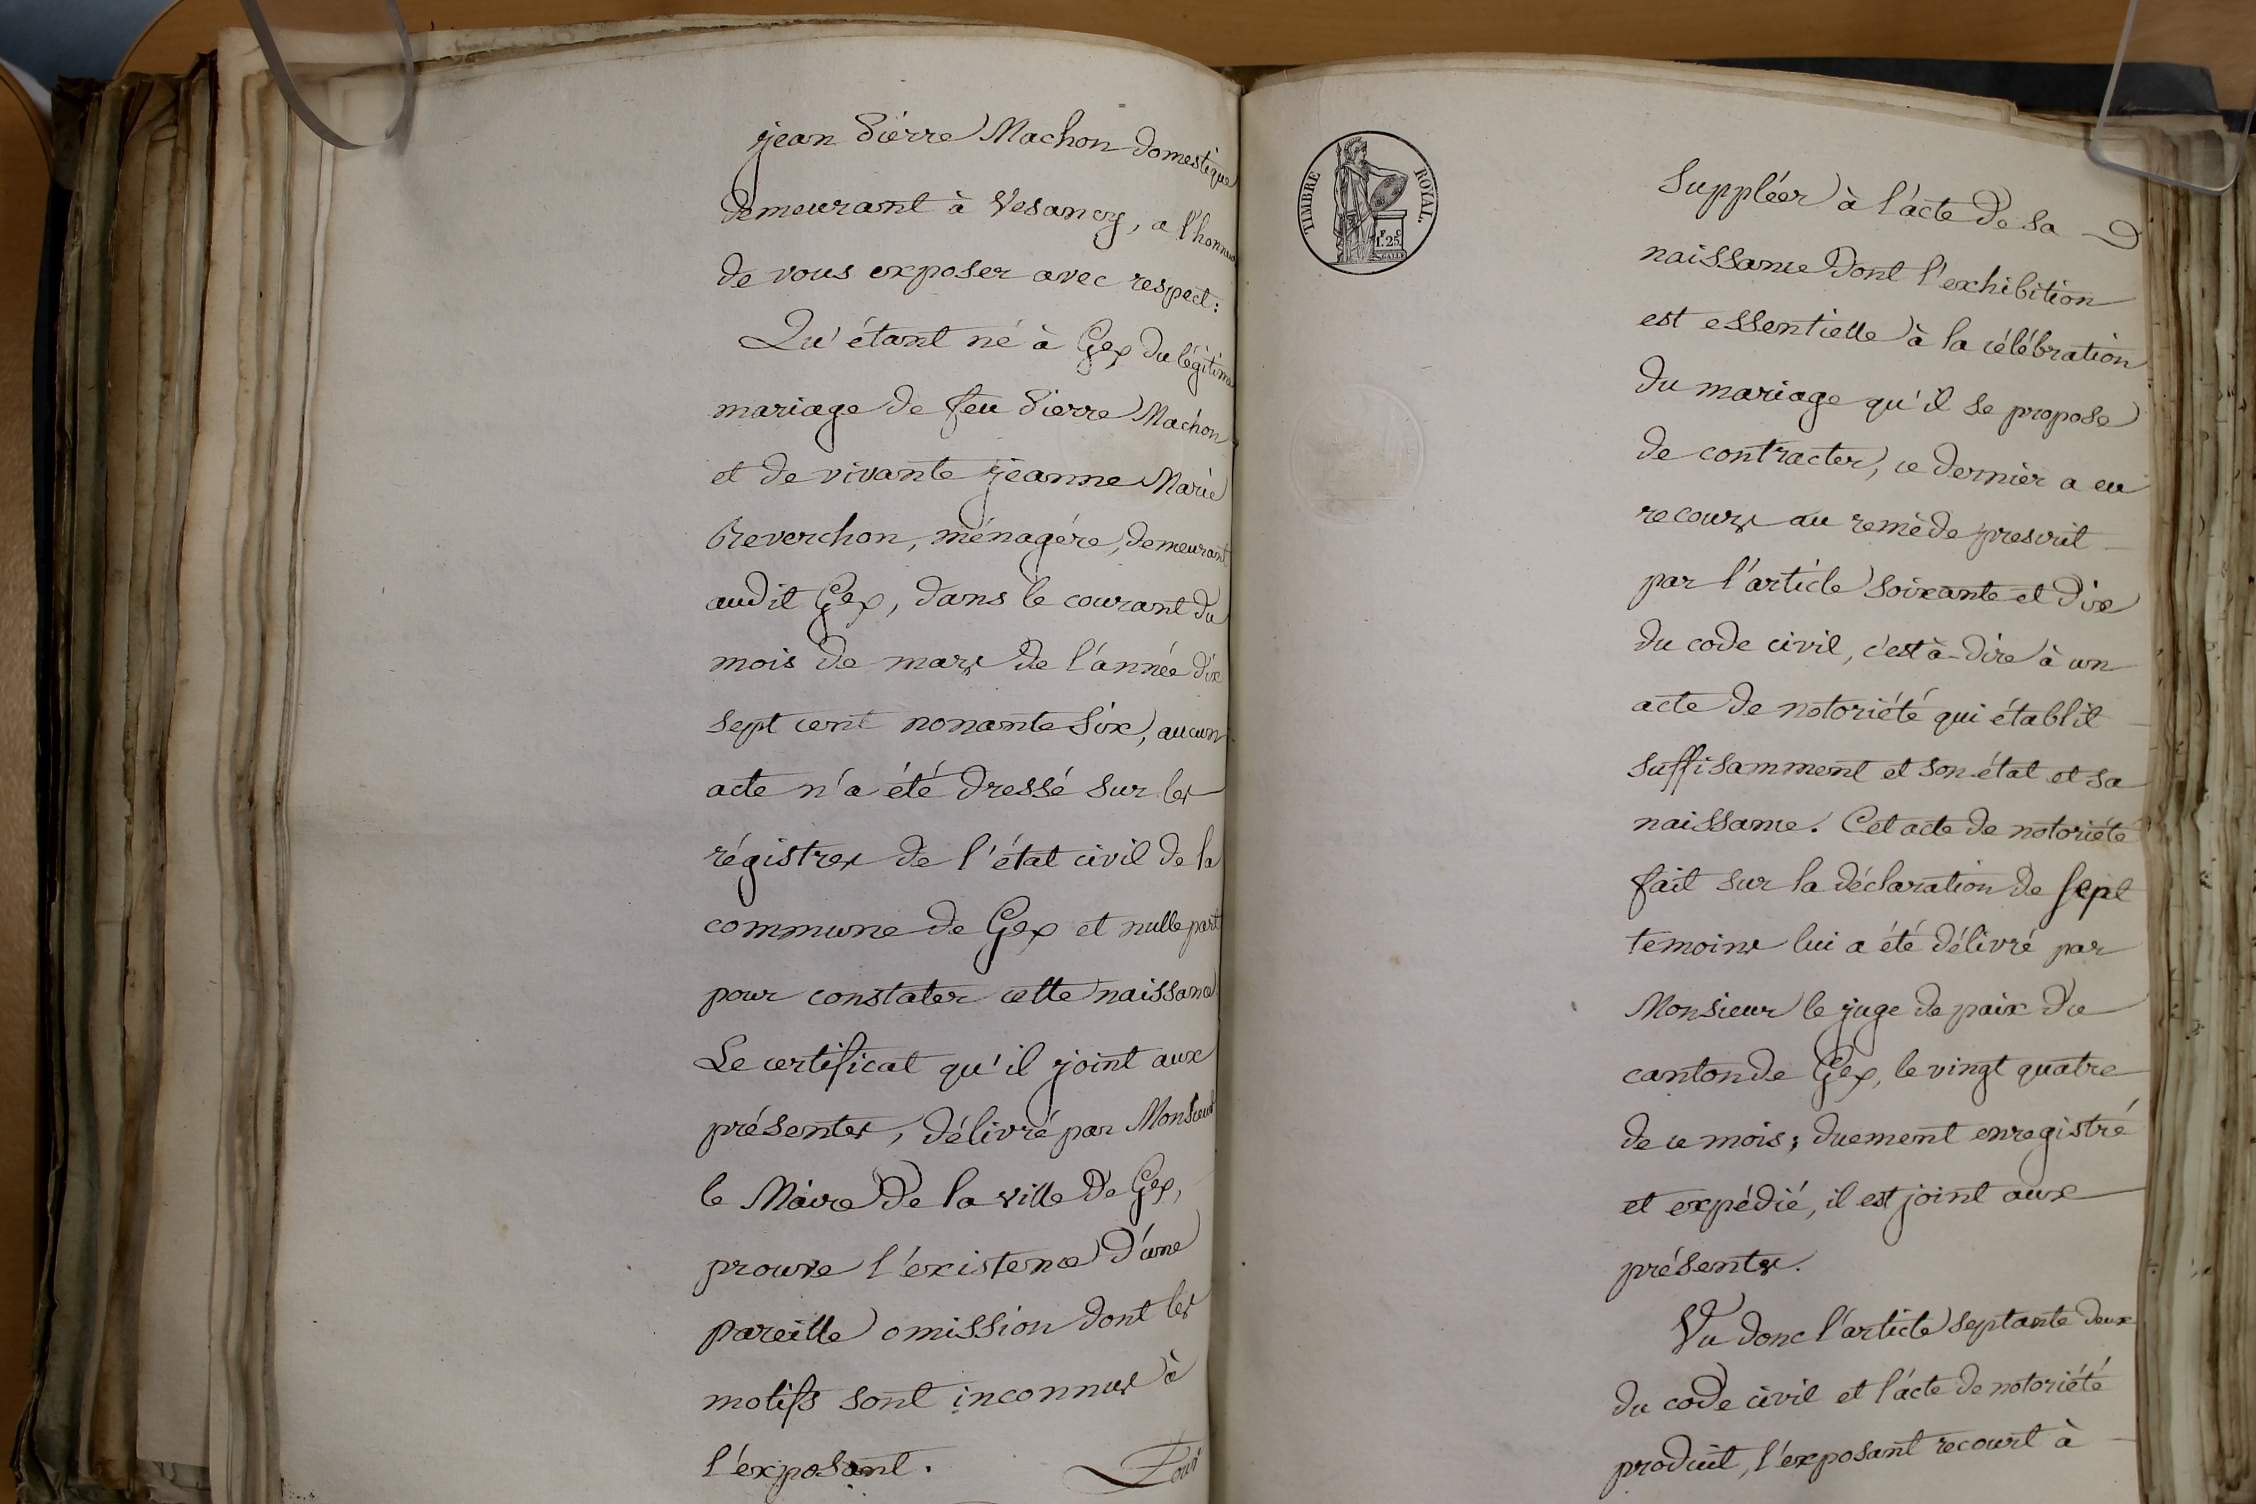 jean Pierre Machon domestique
demeurant à Vesancy, a l'honneur
de vous exposer avec respect :
Qu'étant né à Gex du légitime
mariage de feu Pierre Machon
et de vivante jeanne Marie
Reverchon, ménagère, demeurant
audit Gex, dans le courant du
mois de mars de l'année dix
sept cent nonante six, aucun
acte n'a été dressé sur les
régistres de l'état civil de la
commune de Gex et nulle part
pour constater cette naissance
Le certificat qu'il joint aux
présentes, délivré par Monsieur
le Maire de la ville de Gex,
prouve l'existence d'une
pareille omission dont les
motifs sont inconnus à
l'exposant.
Pour
TIMBRE ROYAL.
F. C.
1.25.
Suppléer à l'acte de sa
naissance dont l'exhibition
est essentielle à la célébration
du mariage qu'il se propose
de contracter, ce dernier a eu
recours au remède prescrit
par l'article soixante et dix
du code civil, c'est à-dire à un
acte de notoriété qui établit
suffisamment et son état et sa
naissance. Cet acte de notoriété
fait sur la déclaration de sept
temoins lui a été délivré par
Monsieur le juge de paix du
canton de Gex, le vingt quatre
de ce mois ; duement enregistré
et expédié, il est joint aux
présentes.
Vu donc l'article septante deux
du code civil et l'acte de notoriété
produit, l'exposant recourt à